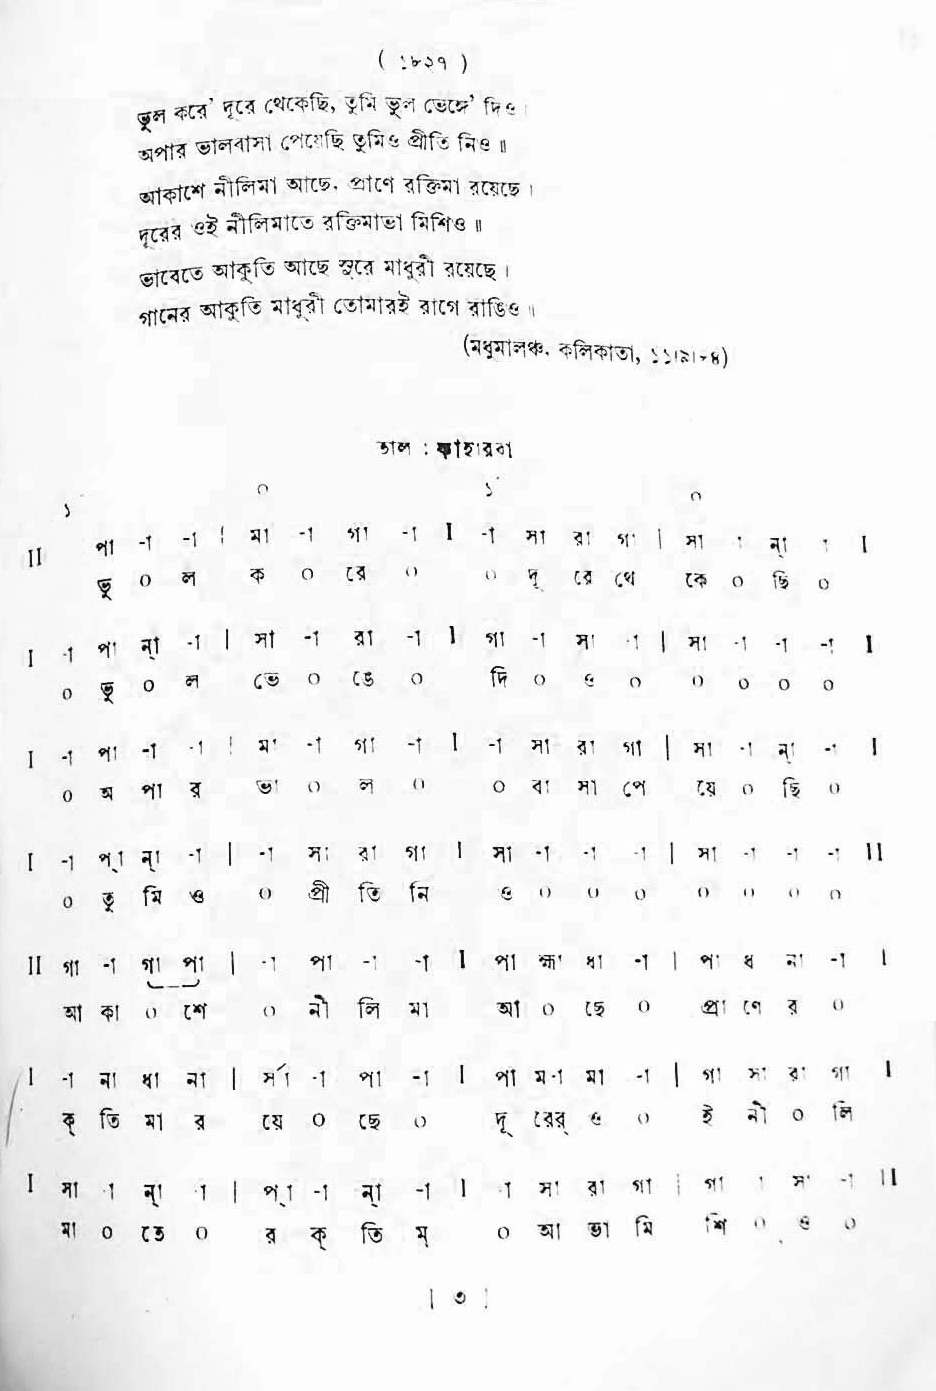 ( ১৮২৭ )
ভুল করে' দূরে থেকেছি, তুমি ভুল ভেঙ্গে' দিও।
অপার ভালবাসা পেয়েছি তুমিও প্রীতি নিও॥
আকাশে নীলিমা আছে, প্রাণে রক্তিমা রয়েছে।
দূরের ওই নীলিমাতে রক্তিমাভা মিশিও॥
ভাবেতে আকুতি আছে সুরে মাধুরী রয়েছে।
গানের আকুতি মাধুরী তোমারই রাগে রাঙিও॥
(মধুমালঞ্চ, কলিকাতা, ১১।৯।৮৪)
তাল : কাহারবা
১ ০ ১ ০
II পা -া -া | মা -া গা -া I -া সা রা গা | সা -া ন্া -া I
ভু ০ ল ক ০ রে ০ ০ দূ রে থে কে ০ ছি ০
I -া পা ন্া -া | সা -া রা -া I গা -া সা -া | সা -া -া -া I
০ ভু ০ ল ভে ০ ঙে ০ দি ০ ও ০ ০ ০ ০ ০
I -া পা -া -া | মা -া গা -া I -া সা রা গা | সা -া ন্া -া I
০ অ পা র ভা ০ ল ০ ০ বা সা পে য়ে ০ ছি ০
I -া প্া ন্া -া | -া সা রা গা I সা -া -া -া | সা -া -া -া II
০ তু মি ও ০ প্রী তি নি ও ০ ০ ০ ০ ০ ০ ০
II গা -া গা পা | -া পা -া -া I পা হ্মা ধা -া | পা ধ না -া I
আ কা ০ শে ০ নী লি মা আ ০ ছে ০ প্রা ণে র ০
I -া না ধা না | র্সা -া পা -া I পা ম -া মা -া | গা সা রা গা I
ক্ তি মা র য়ে ০ ছে ০ দূ রের্ ও ০ ই নী ০ লি
I সা -া ন্া -া | প্া -া ন্া -া I -া সা রা গা | গা -া সা -া II
মা ০ তে ০ র ক্ তি ম্ ০ আ ভা মি শি ০ ও ০
[ ৩ ]